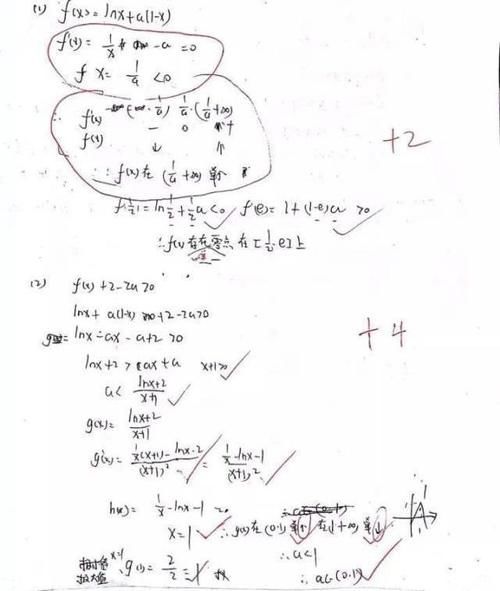 (1) f(x) = lnx + a(1-x)
f'(x) = 1/x - a = 0
x = 1/a < 0
1/a (1/a +∞)
f'(x) - 0 +
f(x) ↓ ↑
∴ f(x)在 (1/a +∞) 单
+2
f(1/2) = ln1/2 + 1/2a < 0 f(e) = 1 + (1-e)a > 0
∴ f(x)存在零点 在 [1/2, e]上
(2) f(x) + 2 - 2a > 0
lnx + a(1-x) + 2 - 2a > 0
lnx - ax - a + 2 > 0
+4
lnx + 2 > ax + a x+1>0
a < (lnx+2)/(x+1)
g(x) = (lnx+2)/(x+1)
g'(x) = (1/x(x+1) - lnx - 2)/(x+1)² = (1/x - lnx - 1)/(x+1)²
h(x) = 1/x - lnx - 1 = 0
x = 1 ∴ g(x)在(0.1)单↑ 在(1 +∞)单↓
x=1 g(1) = 2/2 = 1 ∴ a<1
∴ a∈(0.1)